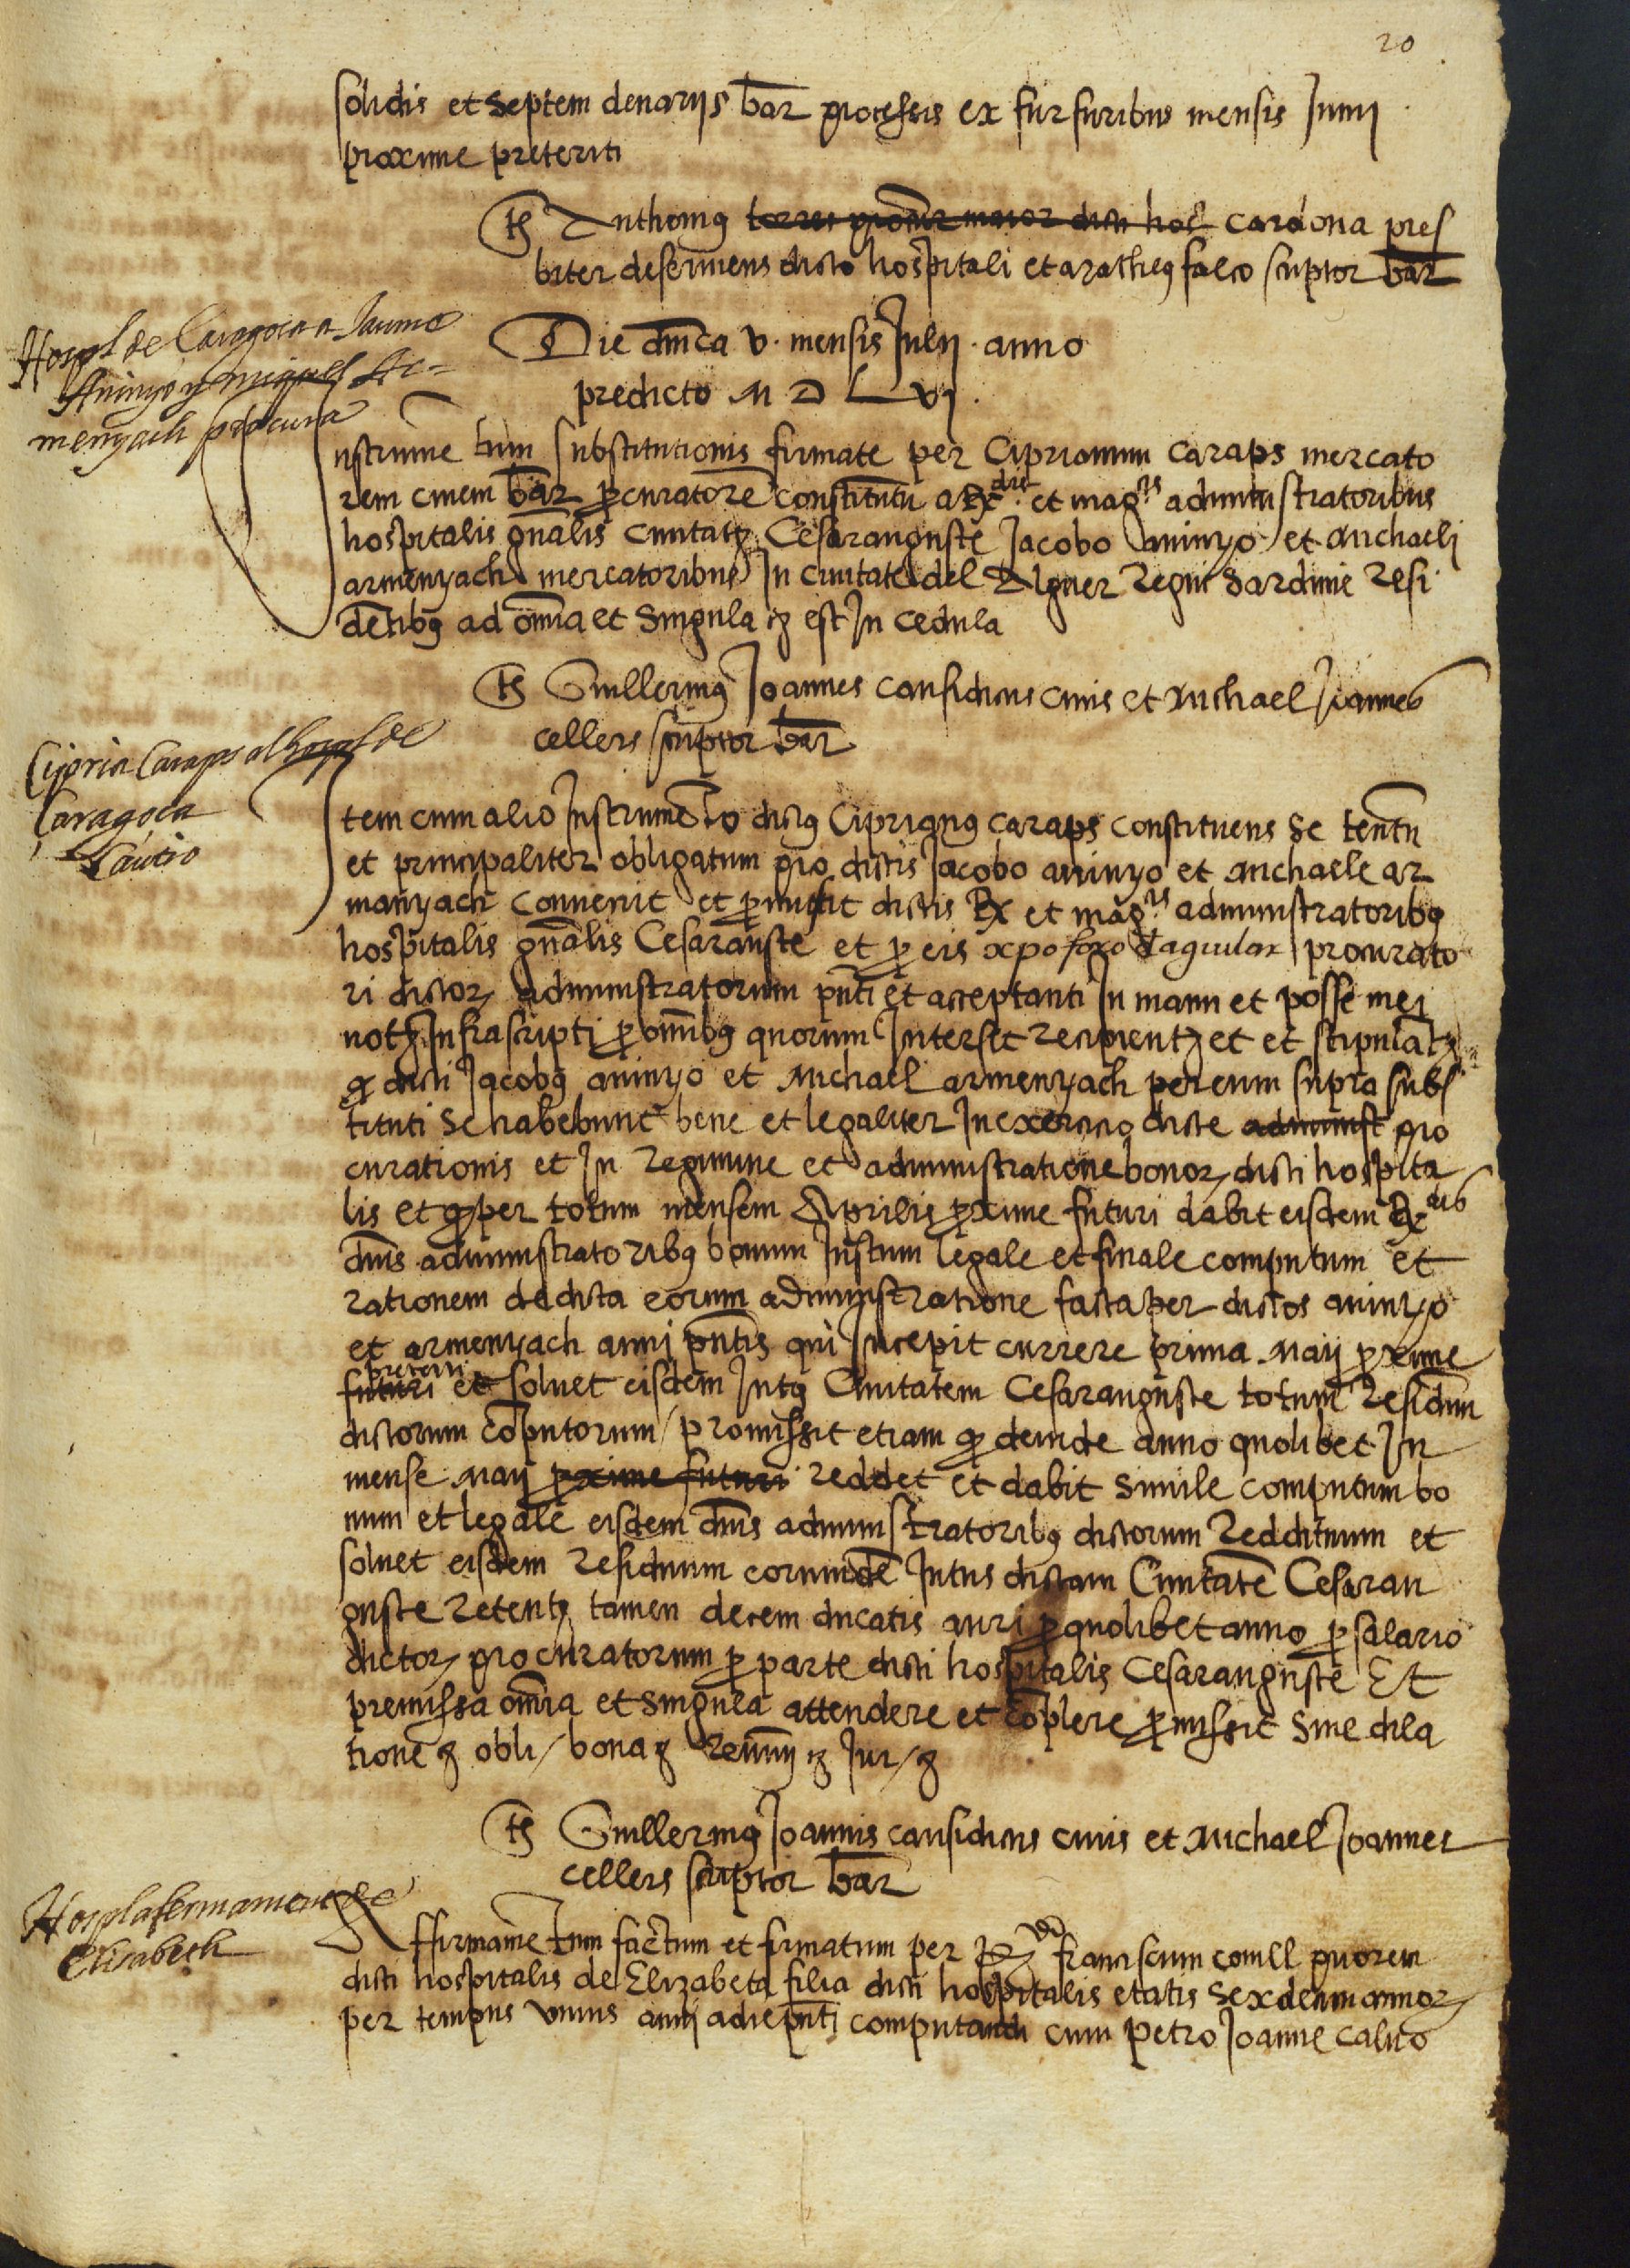 20
solidis et septem denariis bar processis ex furfuribus mensis Junii
proxime preteriti
ts Anthonius torres procur maior dicti hoc cardona pres
biter deserviens dicto hospitali et matheus falco scriptor bar
Die dnica v. mensis Julii anno
predicto M D L vj.
Hospl de Caragoca a Jaume
Aninyo y miquel Ar=
menyach procura
Instrumentum substitutionis firmate per Ciprianum caraps mercato
rem civem bar procuratore constitutu a Rx dis et magcis administratoribus
hospitalis gnalis civitatis Cesarauguste Jacobo aninyo et michaeli
armenyach mercatoribus In civitate del Alguer Regni Sardinie Resi
detibus ad omnia et singula et est In cedula
ts Guillermus Joannes causidicus civis et Michael Joannes
cellers scriptor bar
Cipria Caraps al hospl de
Caragoca
Cautio
Item cum alio Instrumeto dictus Ciprianus caraps constituens se tentu
et principaliter obligatum pro dictis Jacobo aninyo et michaele ar
manyach convenit et promissit dictis Rx et magcis administratoribus
hospitalis gnalis Cesarauste et pro eis xpofoxo daguilar procurato
ri dictor administratorum pnti et acceptanti In manu et posse mei
notr Infrascripti pro omnibus quorum Intersit recipient et et stipulat
q dicti Jacobus aninyo et Michael armenyach per eum supra subs
tituti se habebunt bene et legaliter In exercitio dicte administ pro
curationis et In regimine et administratione bonor dicti hospita
lis et q per totum mensem Aprilis proxime futuri dabit eisdem Rx dis
dnis administratoribus bonum Justum legale et finale computum et
rationem de dicta eorum administratione facta per dictos aninyo
et armenyach anni pntis qui Incepit currere prima Maij proxime
preteriti
futuri et solvet eisdem Intus Civitatem Cesarauguste totum residuum
dictorum coputorum / promissit etiam q deinde anno quolibet In
mense Maij proxime futuri reddet et dabit simile computum bo
num et legale eisdem dnis administratoribus dictorum reddituum et
solvet eisdem residuum eorumde Intus dictam Civitate Cesarau
guste retentis tamen decem ducatis auri pro quolibet anno pro salario
dictor procuratorum pro parte dicti hospitalis Cesarauguste Et
premissa omnia et singula attendere et coplere promissit sine dila
tione et obli / bona et renun et Jur / et
ts Guillermus Joannis causidicus civis et Michael Joannes
cellers scriptor bar
Hospl afermament de
Elisabeth
Affirmametum factum et firmatum per Rx franciscum comell priorem
dicti hospitalis de Elizabeta filia dicti hospitalis etatis sexdecim annor
per tempus unius anni a die pnti computandi cum petro Joanne calvo